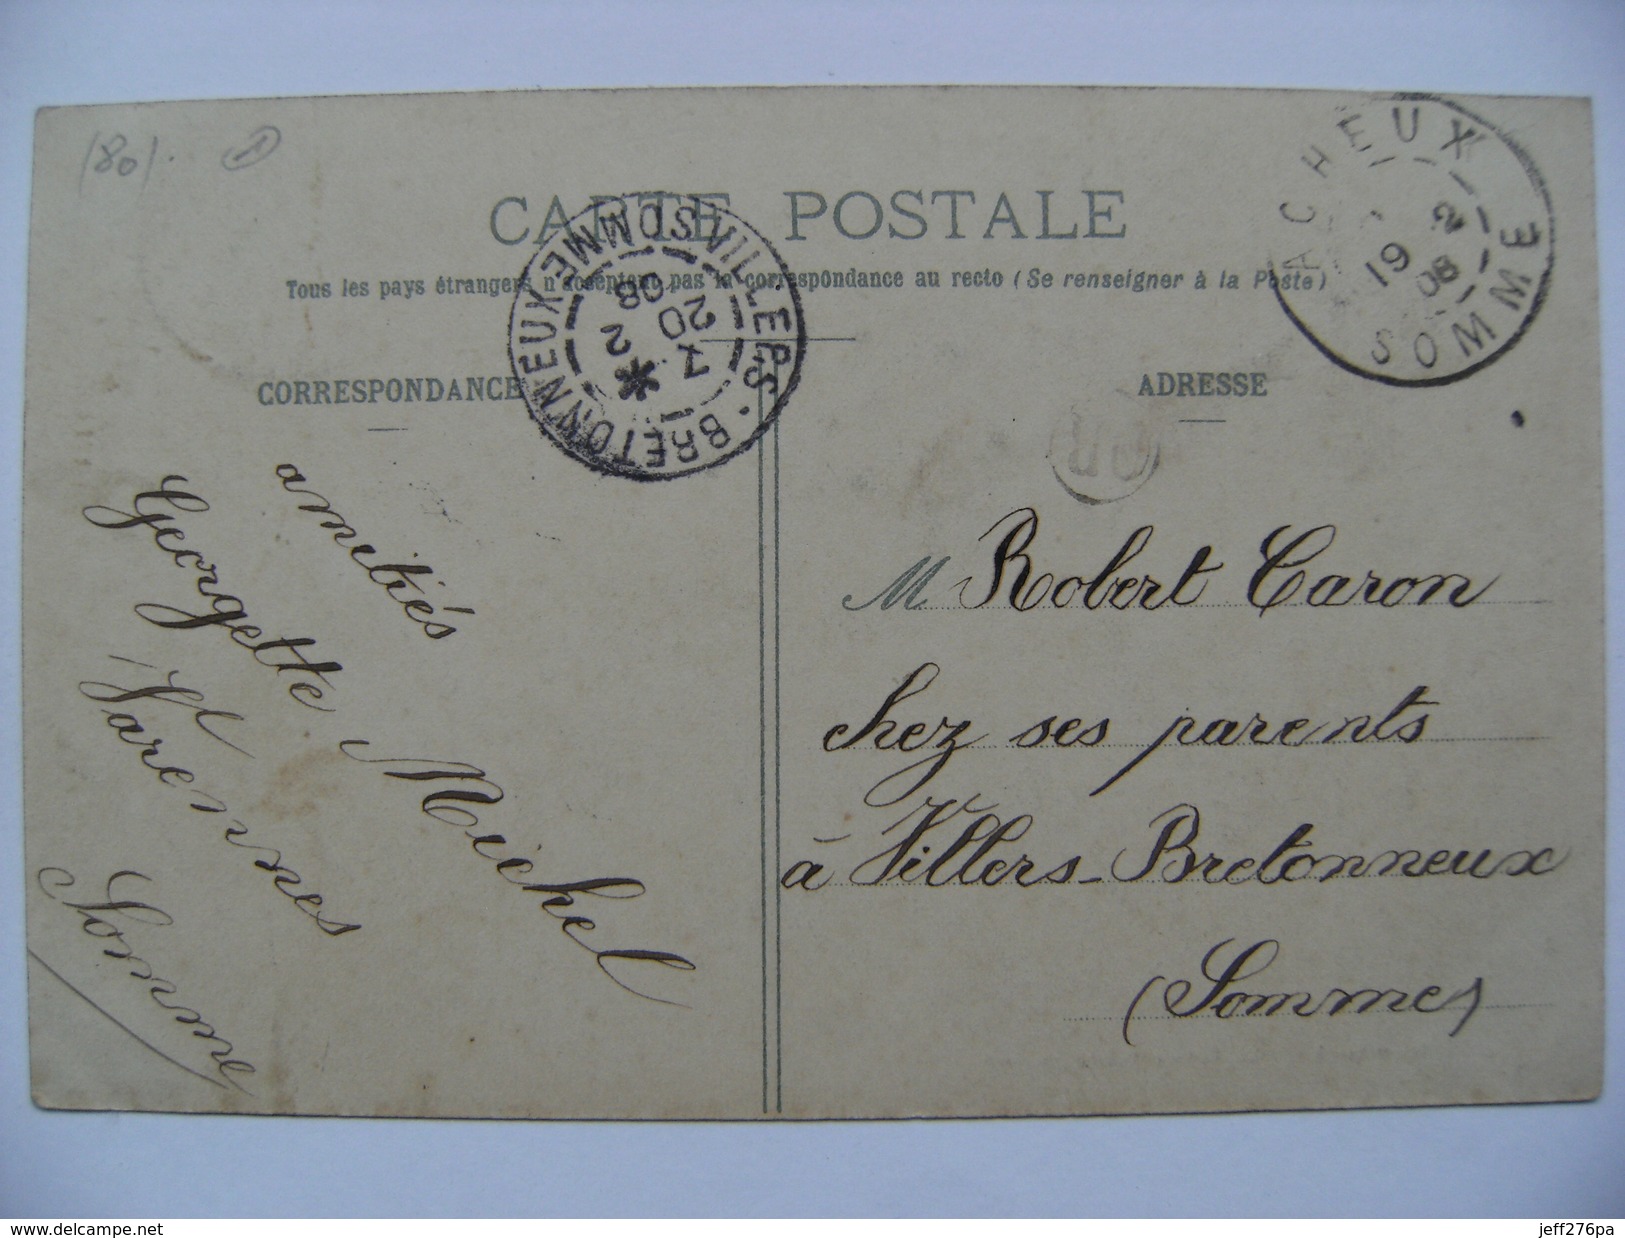 (80).
CARTE POSTALE
Tous les pays étrangers n'acceptent pas la correspondance au recto (Se renseigner à la Poste)
ACHEUX
19 2
08
SOMME
VILLERS-BRETONNEUX SOMME
7 *
20 2
2 08
CORRESPONDANCE
ADRESSE
amitiés
Georgette Michel
Varennes
Somme
M Robert Caron
chez ses parents
à Villers-Bretonneux
(Somme)
delcampe.net
jeff276pa